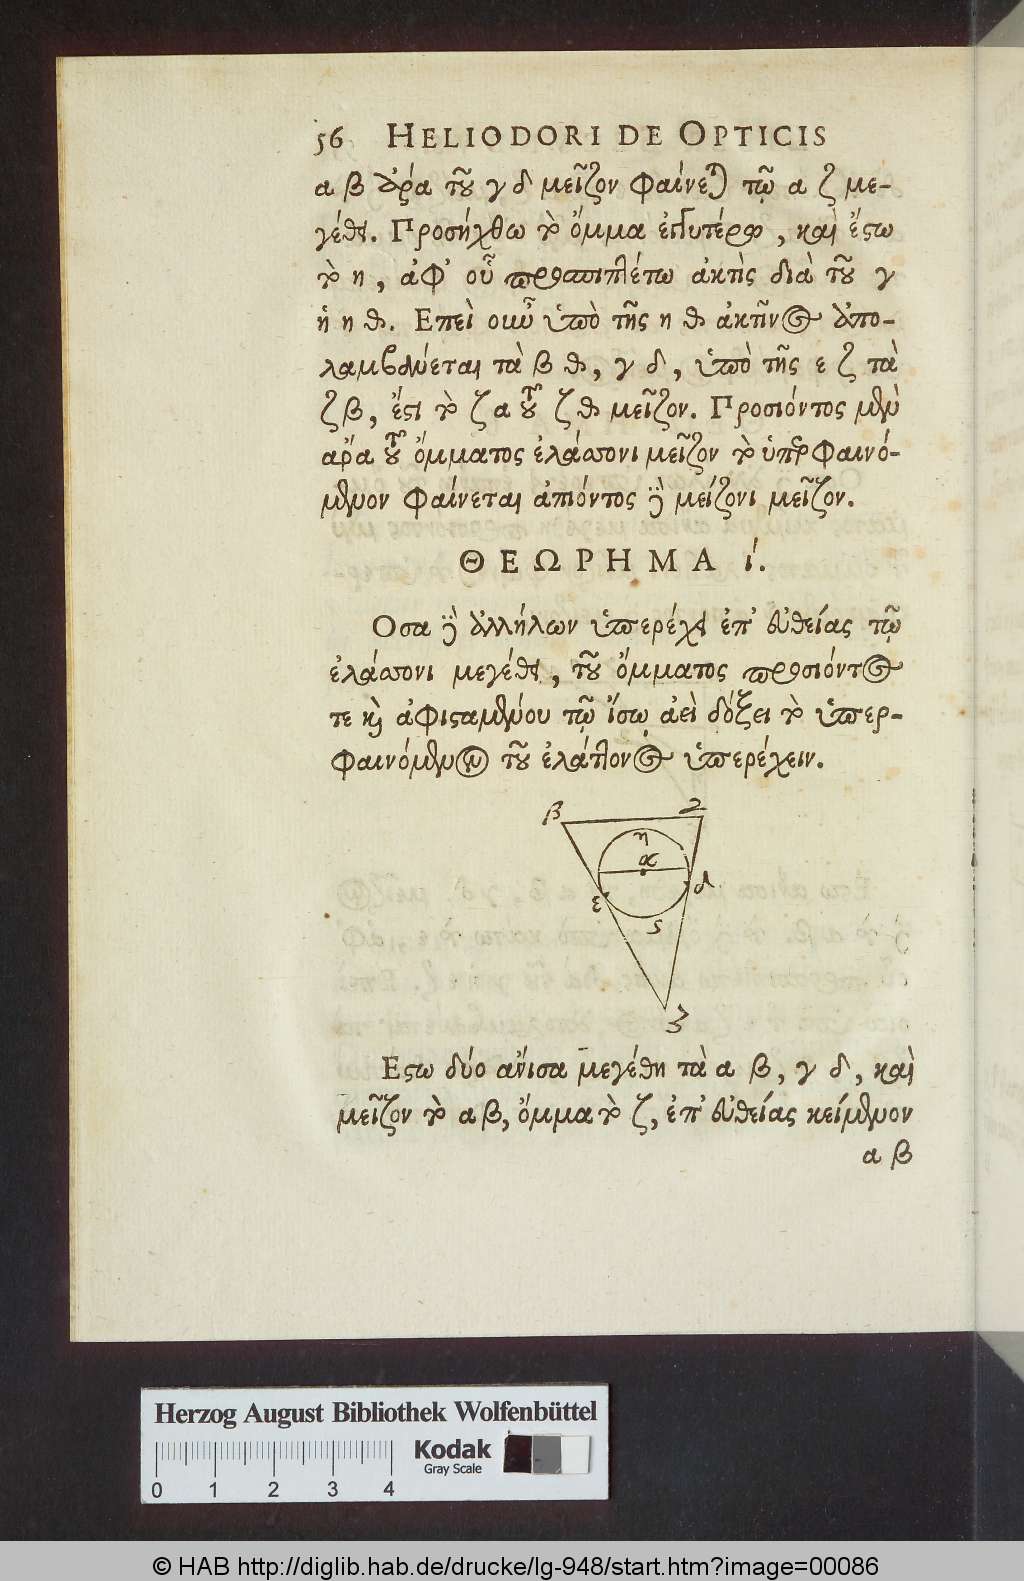 56 HELIODORI DE OPTICIS
α β ἄρα τοῦ γ δ μεῖζον φαίνεται τῷ α ζ με-
γέθει. Προσήχθω τὸ ὄμμα ἐγγυτέρω, καὶ ἔστω
τὸ η, ἀφ᾽ οὗ προσπιπλέτω ἀκτὶς διὰ τοῦ γ
ἡ η θ. Επεὶ οὖν ὑπὸ τῆς η θ ἀκτῖνος ἀπο-
λαμβάνεται τὰ β θ, γ δ, ὑπὸ τῆς ε ζ τὰ
ζ β, ἐστι τὸ ζ α τοῦ ζ θ μεῖζον. Προσιόντος μὲν
ἄρα τοῦ ὄμματος ἐλάσσονι μεῖζον τὸ ὑπερφαινό-
μενον φαίνεται ἀπιόντος δὲ μείζονι μεῖζον.
ΘΕΩΡΗΜΑ ί.
Οσα δὲ ἀλλήλων ὑπερέχει ἐπ᾽ εὐθείας τῷ
ἐλάσσονι μεγέθει, τοῦ ὄμματος προσιόντος
τε καὶ ἀφισταμένου τῷ ἴσῳ ἀεὶ δόξει τὸ ὑπερ-
φαινόμενον τοῦ ἐλάττονος ὑπερέχειν.
β 2
η
α
δ
ε
ς
ζ
Εστω δύο ἄνισα μεγέθη τὰ α β, γ δ, καὶ
μεῖζον τὸ α β, ὄμμα τὸ ζ, ἐπ᾽ εὐθείας κείμενον
α β
Herzog August Bibliothek Wolfenbüttel
Kodak
Gray Scale
0 1 2 3 4
© HAB http://diglib.hab.de/drucke/lg-948/start.htm?image=00086